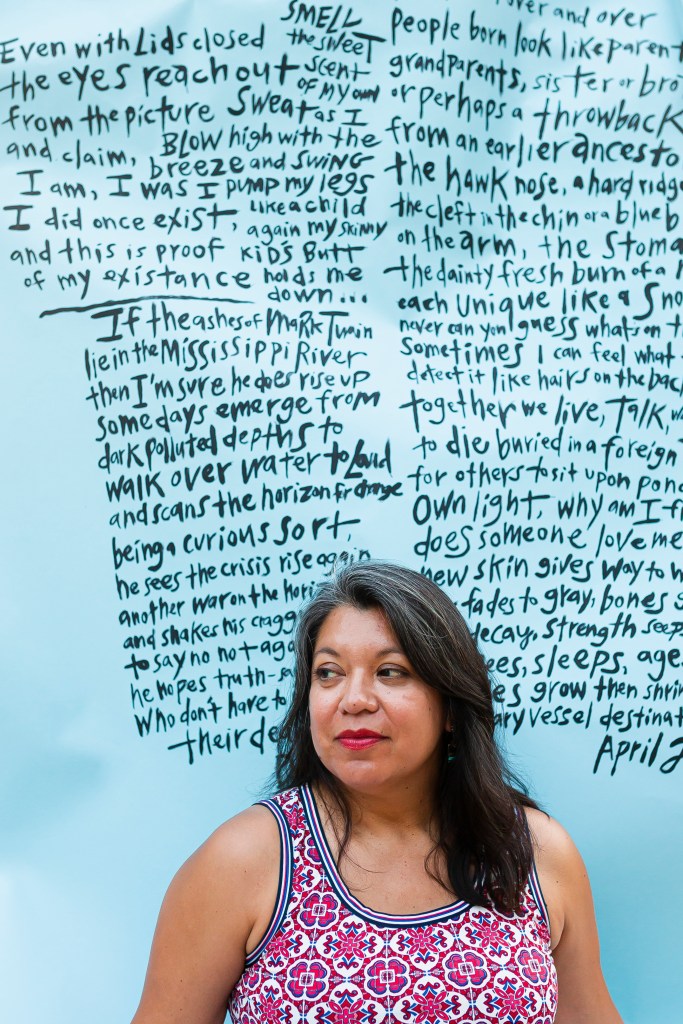 Even with Lids closed
the eyes reach out
from the picture
and claim,
I am, I was
I did once exist,
and this is proof
of my existance
SMELL
the sweet
scent
of my own
Sweat as I
BLOW high with the
breeze and SWING
I pump my legs
like a child
again my skinny
kid's butt
holds me
down...
If the ashes of Mark Twain
lie in the Mississippi River
then I'm sure he does rise up
some days emerge from
dark polluted depths to
walk over water to Land
and scans the horizon for change
being a curious sort,
he sees the crisis rise again
another war on the
and shakes his
to say no not
he hopes
who don't have to
their
over and over
people born look like
grandparents, sister or
or perhaps a throwback
from an earlier
the hawk nose, a hard
the cleft in the chin or a blue
on the arm, the
the dainty fresh burn of a
each unique like a
never can you guess what's on
Sometimes I can feel what
detect it like hairs on the
together we live, Talk,
to die buried in a foreign
for others to sit upon
Own light, why am I
does someone love me
new skin gives way to
fades to gray, bones
decay, strength
sleeps,
grow then
vessel
April